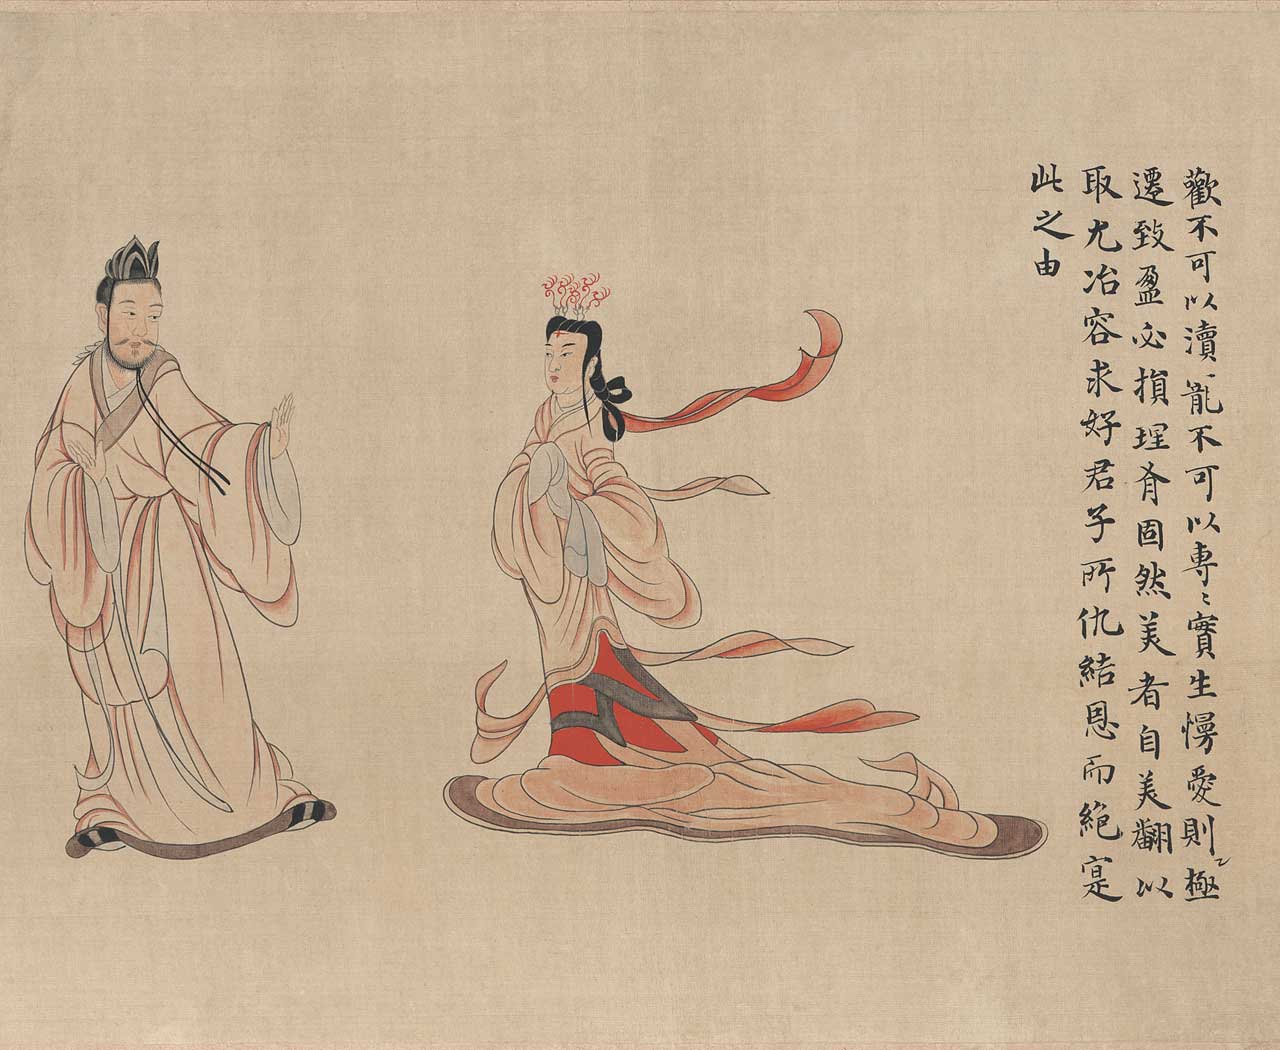 歡不可以瀆寵不可以專〻實生慢愛則極
遷致盈必損理有固然美者自美翻以
取尤冶容求好君子所仇結恩而絕寔
此之由